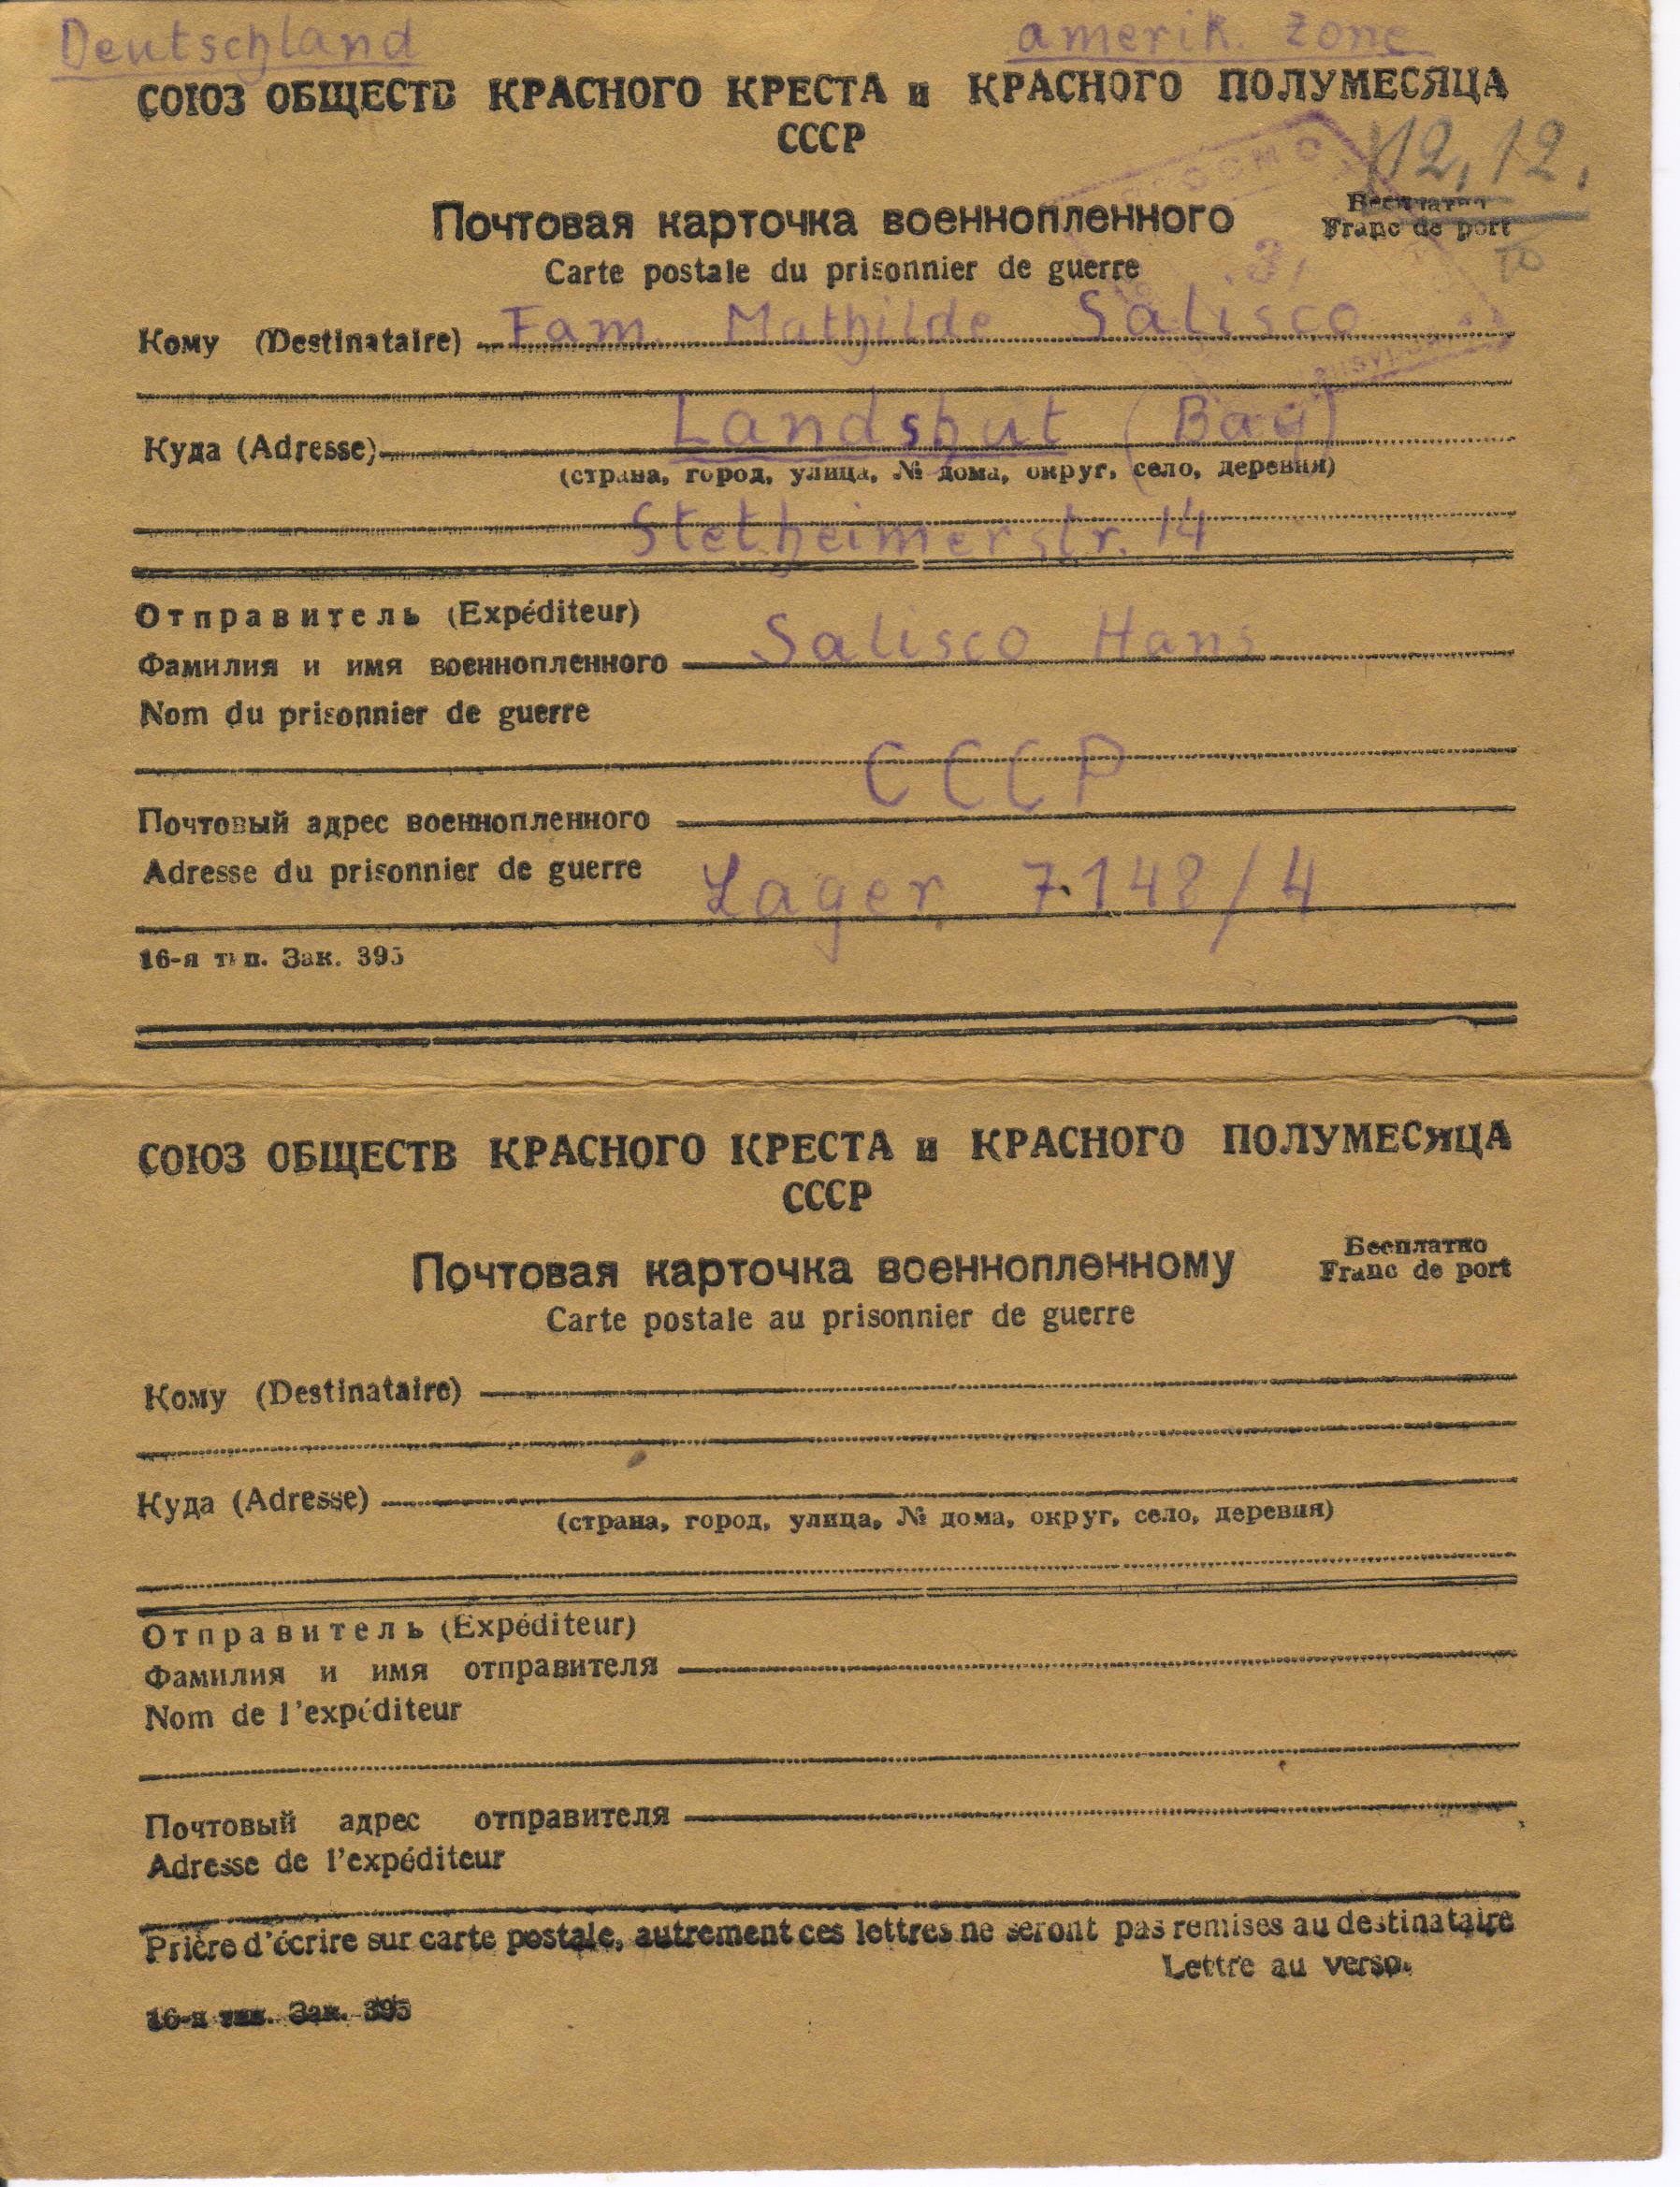 Deutschland amerik. Zone
СОЮЗ ОБЩЕСТВ КРАСНОГО КРЕСТА и КРАСНОГО ПОЛУМЕСЯЦА
СССР
12.12.
Почтовая карточка военнопленного
Бесплатно
Franc de port
Carte postale du prisonnier de guerre
Кому (Destinataire) Fam. Mathilde Salisco
Куда (Adresse) Landshut (Bay)
(страна, город, улица, № дома, округ, село, деревня)
Stetheimerstr. 14
Отправитель (Expéditeur)
Фамилия и имя военнопленного Salisco Hans
Nom du prisonnier de guerre
СССР
Почтовый адрес военнопленного
Adresse du prisonnier de guerre Lager 7148/4
16-я тип. Зак. 395
СОЮЗ ОБЩЕСТВ КРАСНОГО КРЕСТА и КРАСНОГО ПОЛУМЕСЯЦА
СССР
Почтовая карточка военнопленному
Бесплатно
Franc de port
Carte postale au prisonnier de guerre
Кому (Destinataire)
Куда (Adresse)
(страна, город, улица, № дома, округ, село, деревня)
Отправитель (Expéditeur)
Фамилия и имя отправителя
Nom de l'expéditeur
Почтовый адрес отправителя
Adresse de l'expéditeur
Prière d'écrire sur carte postale, autrement ces lettres ne seront pas remises au destinataire
Lettre au verso.
16-я тип. Зак. 395